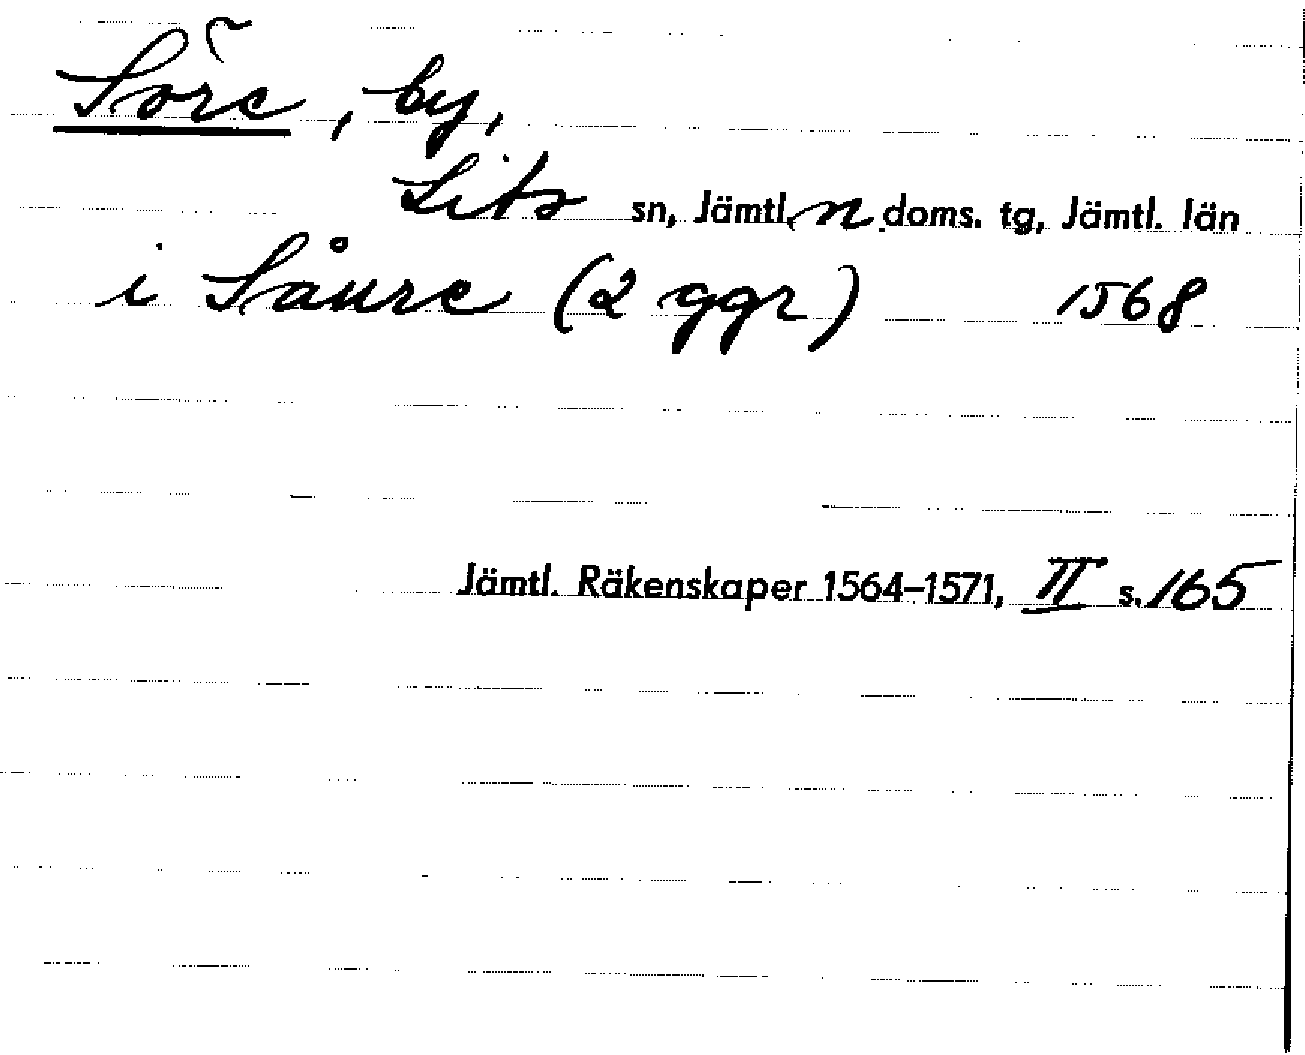 Söre, by,
Lits sn, Jämtl. n doms. tg, Jämtl. län
i Såure (2 ggr) 1568
Jämtl. Räkenskaper 1564–1571, II s. 165